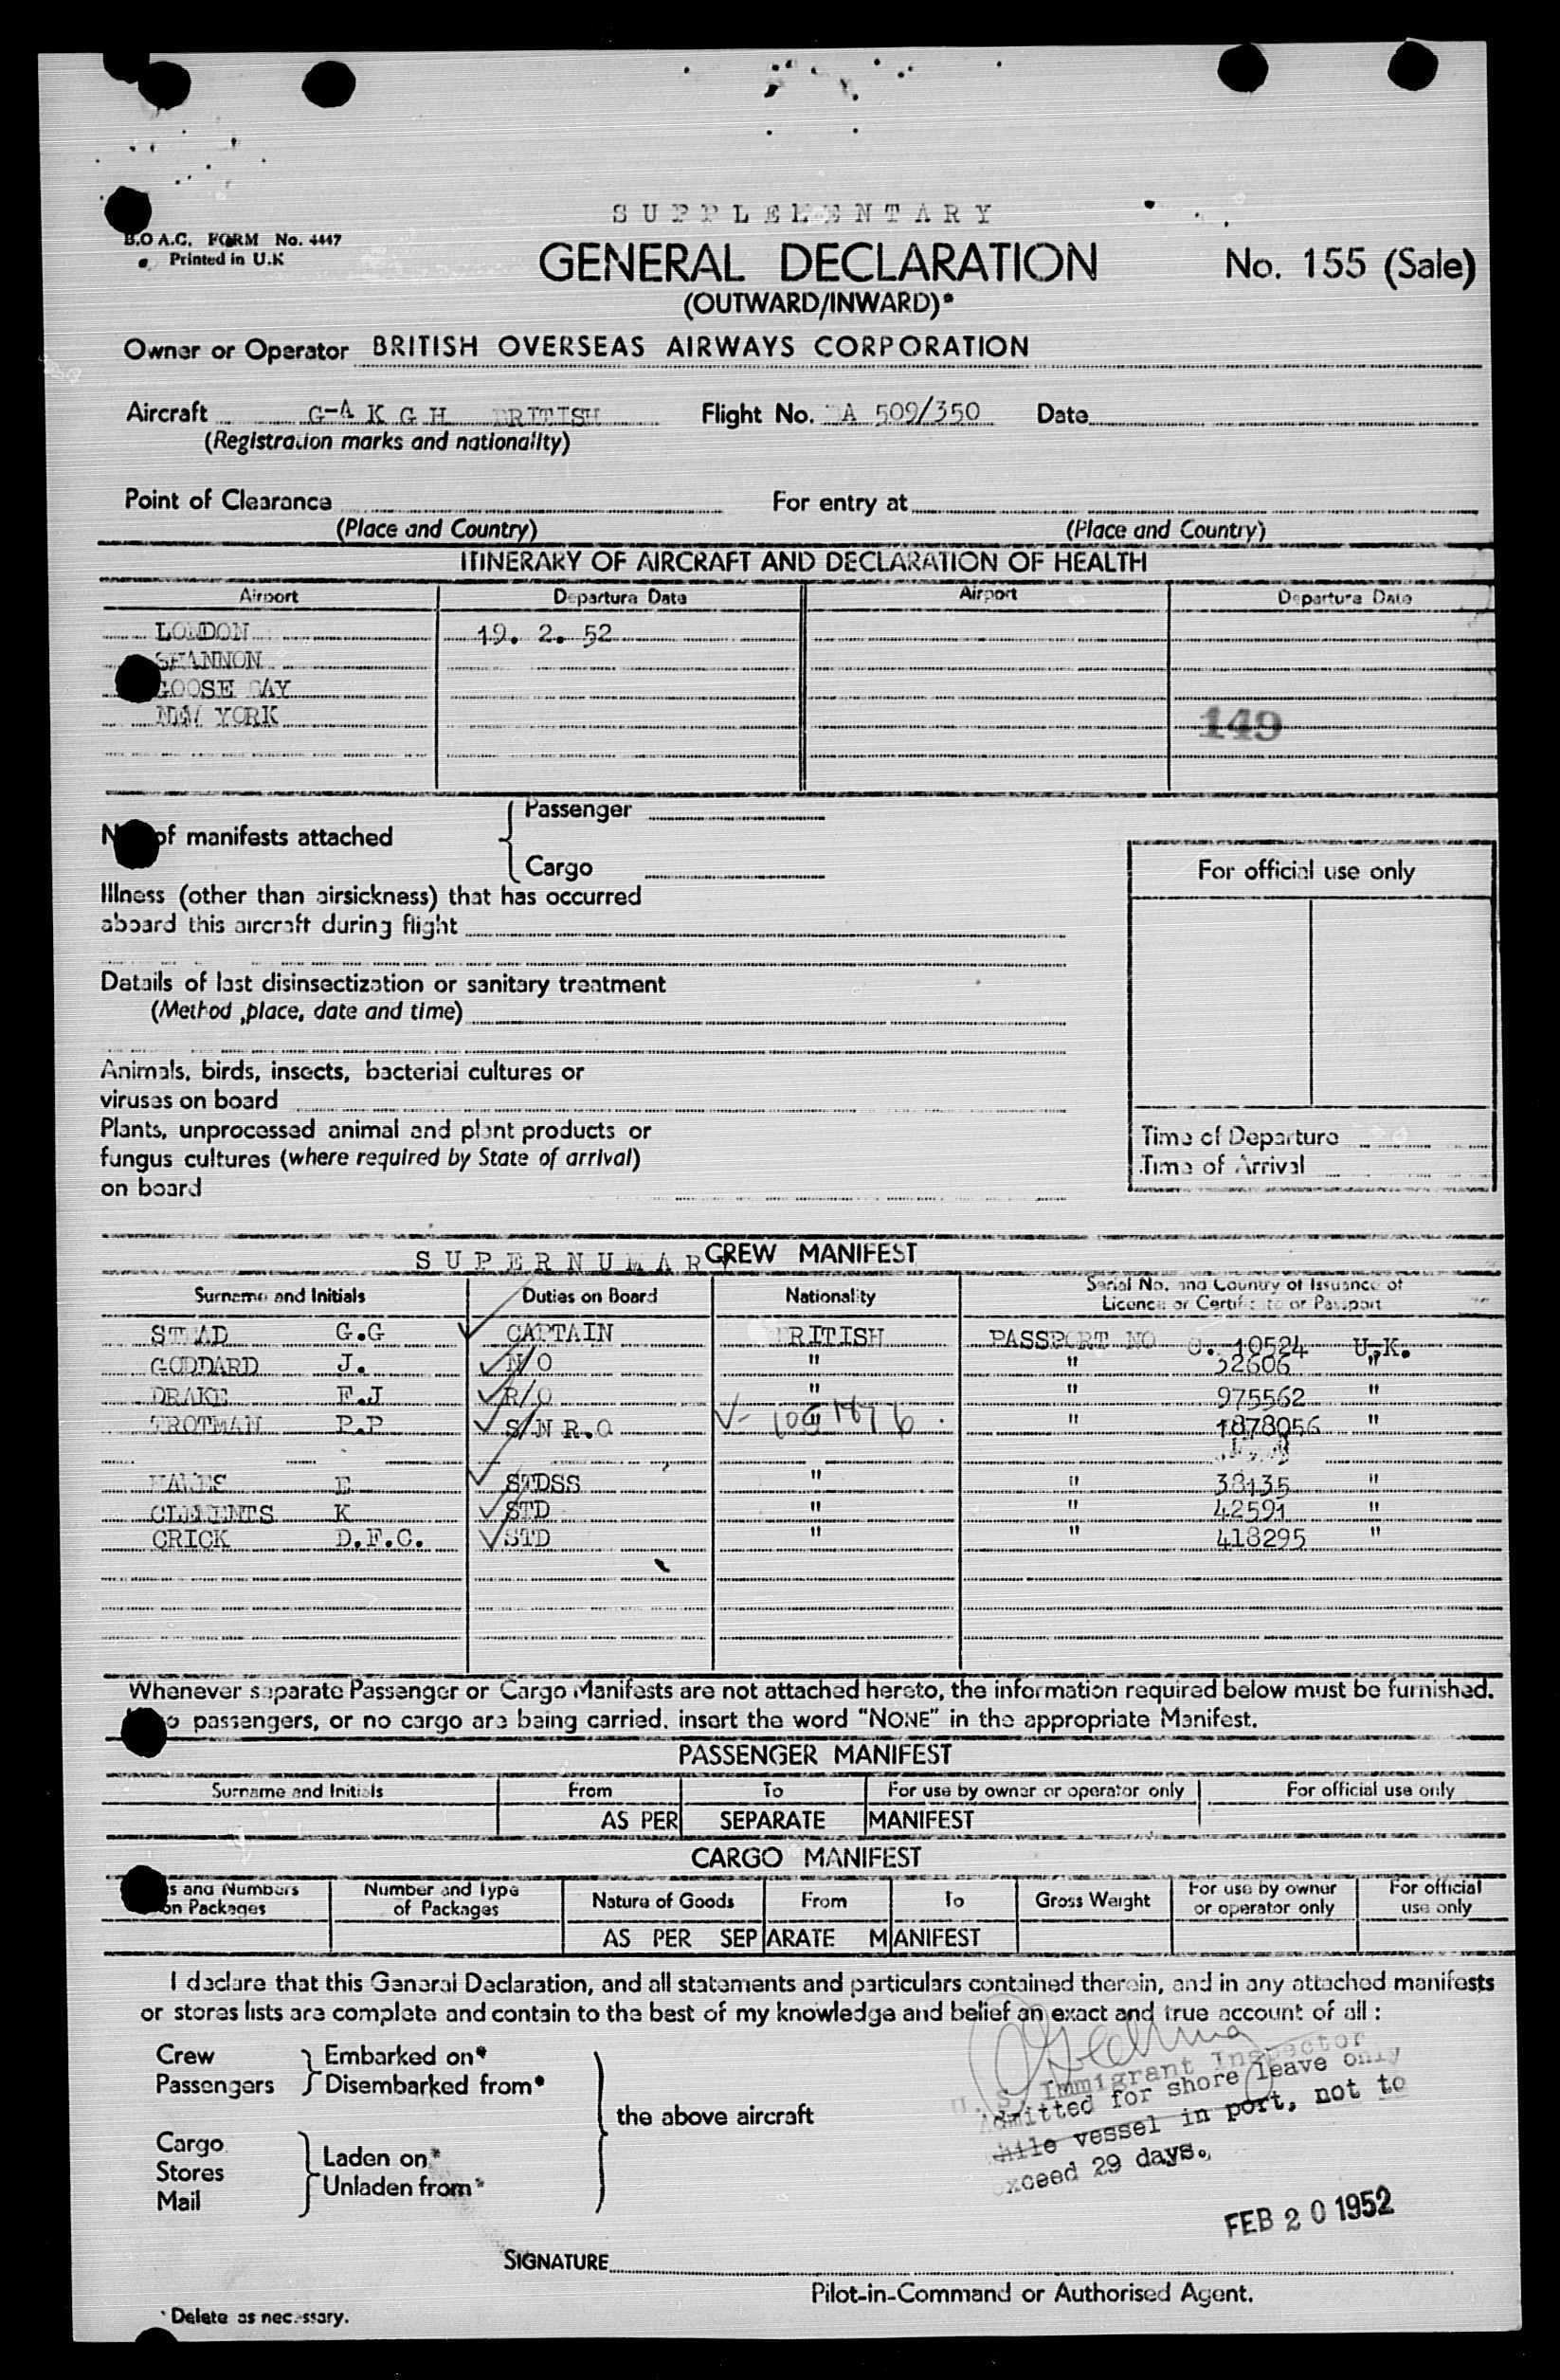 SUPPLEMENTARY
B.O.A.C. FORM No. 4447
Printed in U.K
GENERAL DECLARATION
No. 155 (Sale)
(OUTWARD/INWARD)*
Owner or Operator BRITISH OVERSEAS AIRWAYS CORPORATION
Aircraft G-A K G H BRITISH Flight No. BA 509/350 Date
(Registration marks and nationality)
Point of Clearance For entry at
(Place and Country) (Place and Country)
ITINERARY OF AIRCRAFT AND DECLARATION OF HEALTH
Airport Departure Date Airport Departure Date
LONDON 19. 2. 52
SHANNON
GOOSE BAY
NEW YORK 149
Passenger
No. of manifests attached
Cargo
For official use only
Illness (other than airsickness) that has occurred
aboard this aircraft during flight
Details of last disinsectization or sanitary treatment
(Method, place, date and time)
Animals, birds, insects, bacterial cultures or
viruses on board
Plants, unprocessed animal and plant products or
fungus cultures (where required by State of arrival)
on board
Time of Departure
Time of Arrival
SUPERNUMARY CREW MANIFEST
Surname and Initials Duties on Board Nationality Serial No. and Country of Issuance of
Licence or Certificate or Passport
STEAD G.G CAPTAIN BRITISH PASSPORT NO C. 10524 U.K.
GODDARD J. N/O " " 32606 "
DRAKE F.J R/O " " 975562 "
TROTMAN P.P S/N R.O " " 1878056 "
E STDSS " " 38135 "
CLEMENTS K STD " " 42591 "
CRICK D.F.C. STD " " 418295 "
Whenever separate Passenger or Cargo Manifests are not attached hereto, the information required below must be furnished.
If no passengers, or no cargo are being carried, insert the word "NONE" in the appropriate Manifest.
PASSENGER MANIFEST
Surname and Initials From To For use by owner or operator only For official use only
AS PER SEPARATE MANIFEST
CARGO MANIFEST
Marks and Numbers on Packages Number and Type of Packages Nature of Goods From To Gross Weight For use by owner or operator only For official use only
AS PER SEPARATE MANIFEST
I declare that this General Declaration, and all statements and particulars contained therein, and in any attached manifests
or stores lists are complete and contain to the best of my knowledge and belief an exact and true account of all :
Crew Embarked on*
Passengers Disembarked from*
the above aircraft
Cargo
Stores Laden on*
Mail Unladen from*
U. S. Immigrant Inspector
Admitted for shore leave only
while vessel in port, not to
exceed 29 days.
FEB 20 1952
SIGNATURE
Pilot-in-Command or Authorised Agent.
* Delete as necessary.